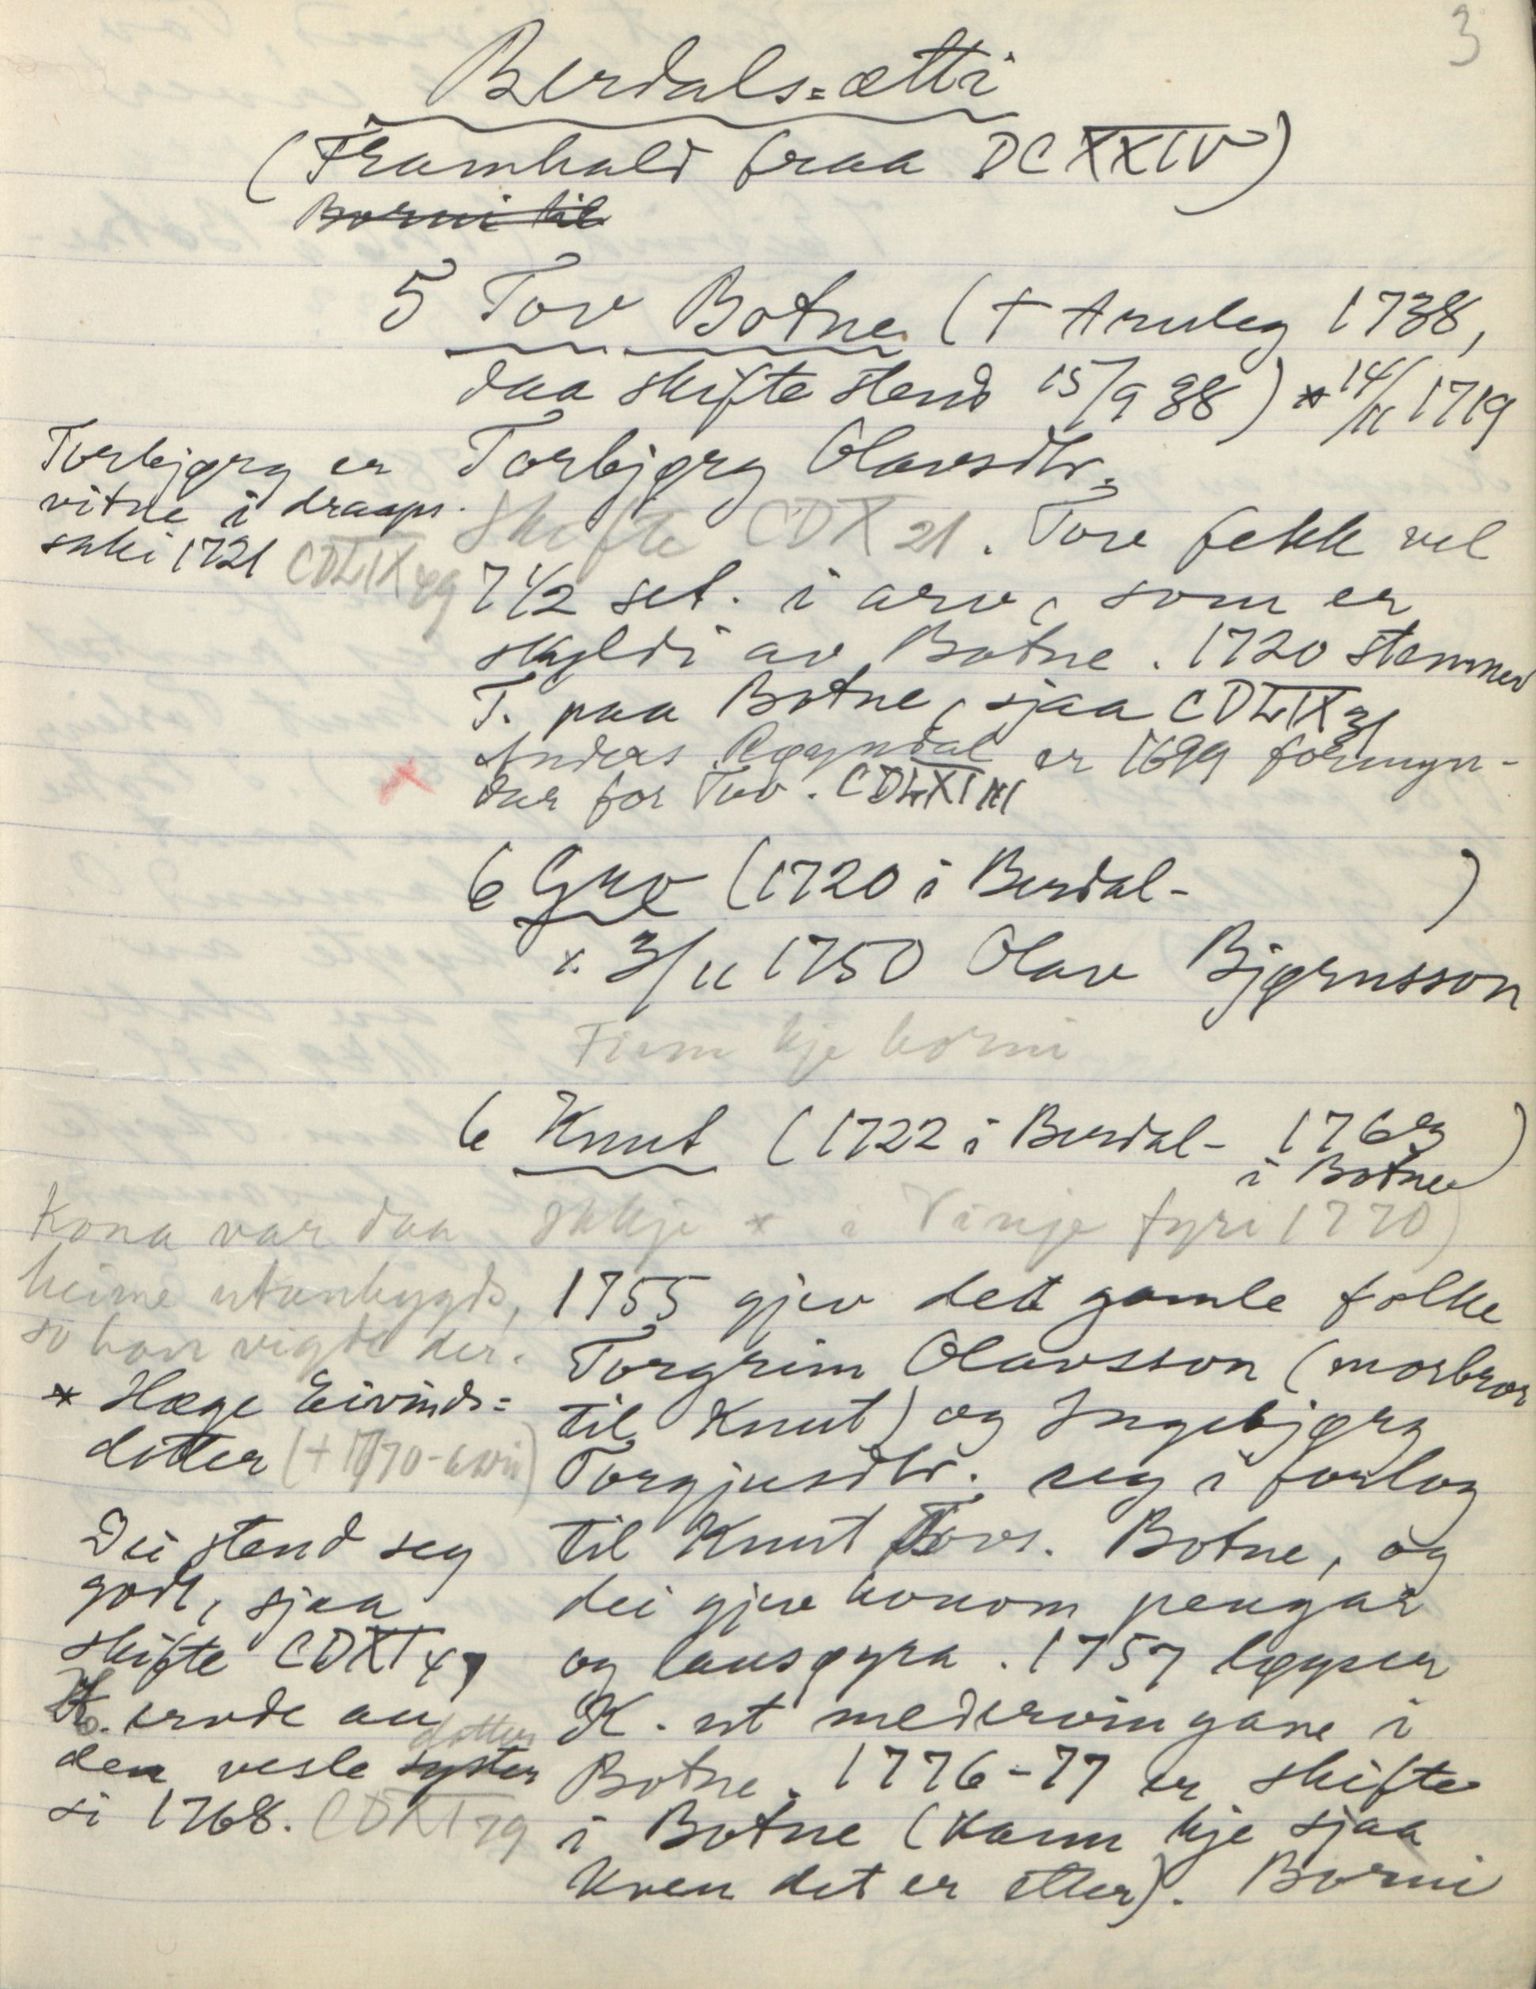 3
Berdals=ætti
(Framhald fraa DCXXIV)
Borni til
5 Tov Botne († truleg 1738,
daa skifte stend 15/9 38) * 14/11 1719
Torbjørg Olavsdtr.
Skifte CDX 21. Tore fekk vel
7 1/2 set. i arv, som er
skyldi av Botne. 1720 stemner
T. paa Botne, sjaa CDLIX 31
Anders Røyndal er 1699 formyn-
dar for Tov. CDLXI
Torbjørg er
vitne i draaps-
saki 1721 CDLIX 49
6 Gro (1720 i Berdal- )
x. 3/11 1750 Olav Bjørnsson
Finn kje borni
6 Knut (1722 i Berdal- 176
i Botne)
ikkje * i Vinje fyri 1770)
Kona var daa
heime utanbygds,
so han vigde der.
* Hæge Eivinds=
dotter (+ 1770-
Dei stend seg
godt, sjaa
skifte CDXI 47
K. ervde au
dotter
den vesle syster
si 1768. CDXI 79
1755 gjev det gamle folke
Torgrim Olavsson (morbror
til Knut) og Ingebjørg
Torgjusdtr. seg i forlog
til Knut Tovs. Botne, og
dei gjev honom pengar
og lausøyra. 1757 løyser
K. ut medervingane i
Botne. 1776-77 er skifte
i Botne (kann kje sjaa
kven det er etter). Borni